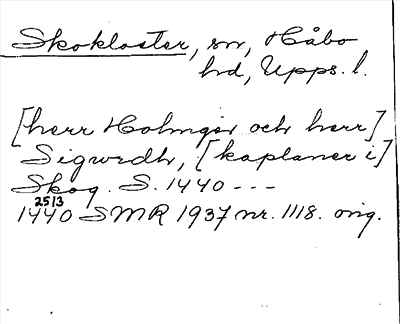 Skokloster, sn, Håbo
hd, Upps. l.
[herr Holmger och herr]
Sigwrdh, [kaplaner i]
Skog. S. 1440 ---
25/3
1440 SMR 1937 nr. 1118. orig.